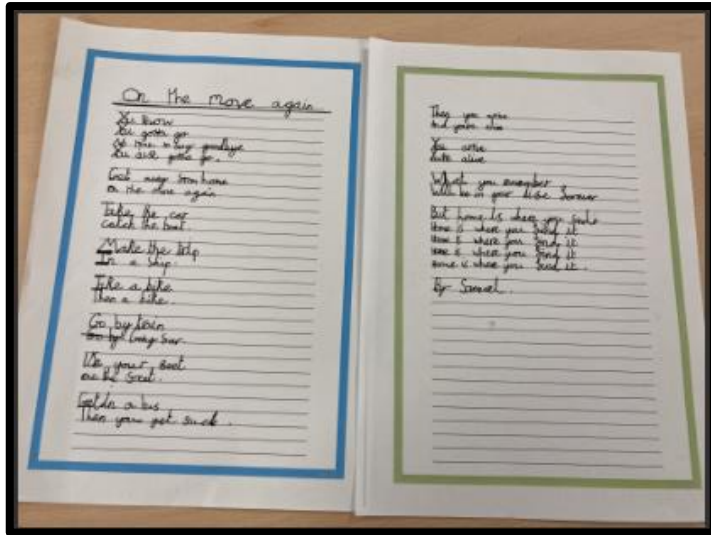 On the move again
You know
You gotta go
No time to say goodbye
You just gotta go.
Get away from home
on the move again
Take the car
catch the boat.
Make the trip
In a ship.
Take a hike
Then a bike.
Go by train
Go by
Use your feet
on the street.
Get in a bus
Then you get
Then you arive
And you're alive
You arive
alive
What you remember
Will be in your forever
But home is where you
Home is where you find it
Home is where you find it
Home is where you find it
Home is where you find it.
By Samuel.